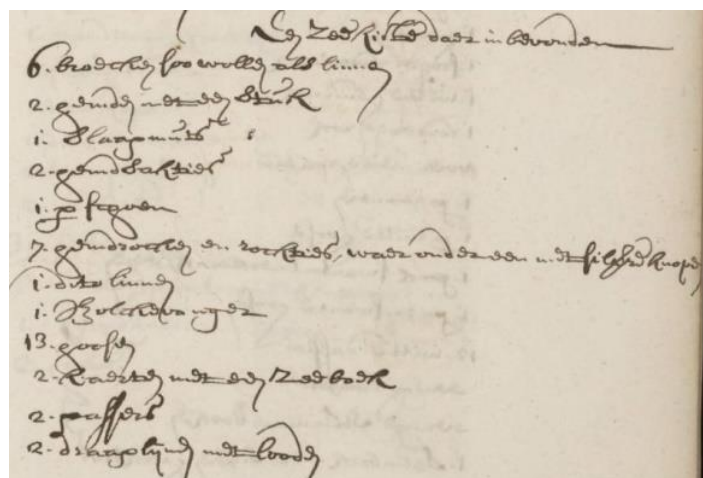 Een Zee kiste daer in bevonden
6. broecken soo wollen als linnen
2. hemden met een stuk
1. slaapmuts
2. hemdtrokties
1. pr schoen
7. hemdrocken en rockties, waer onder een met silvere knopen
1. dito linnen
1. Bolckevanger
13. hosen
2. kaerten met een Zeeboek
2. passers
2. draaglijnen met looden